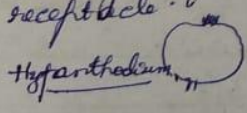 receptacle.
Hypanthodium